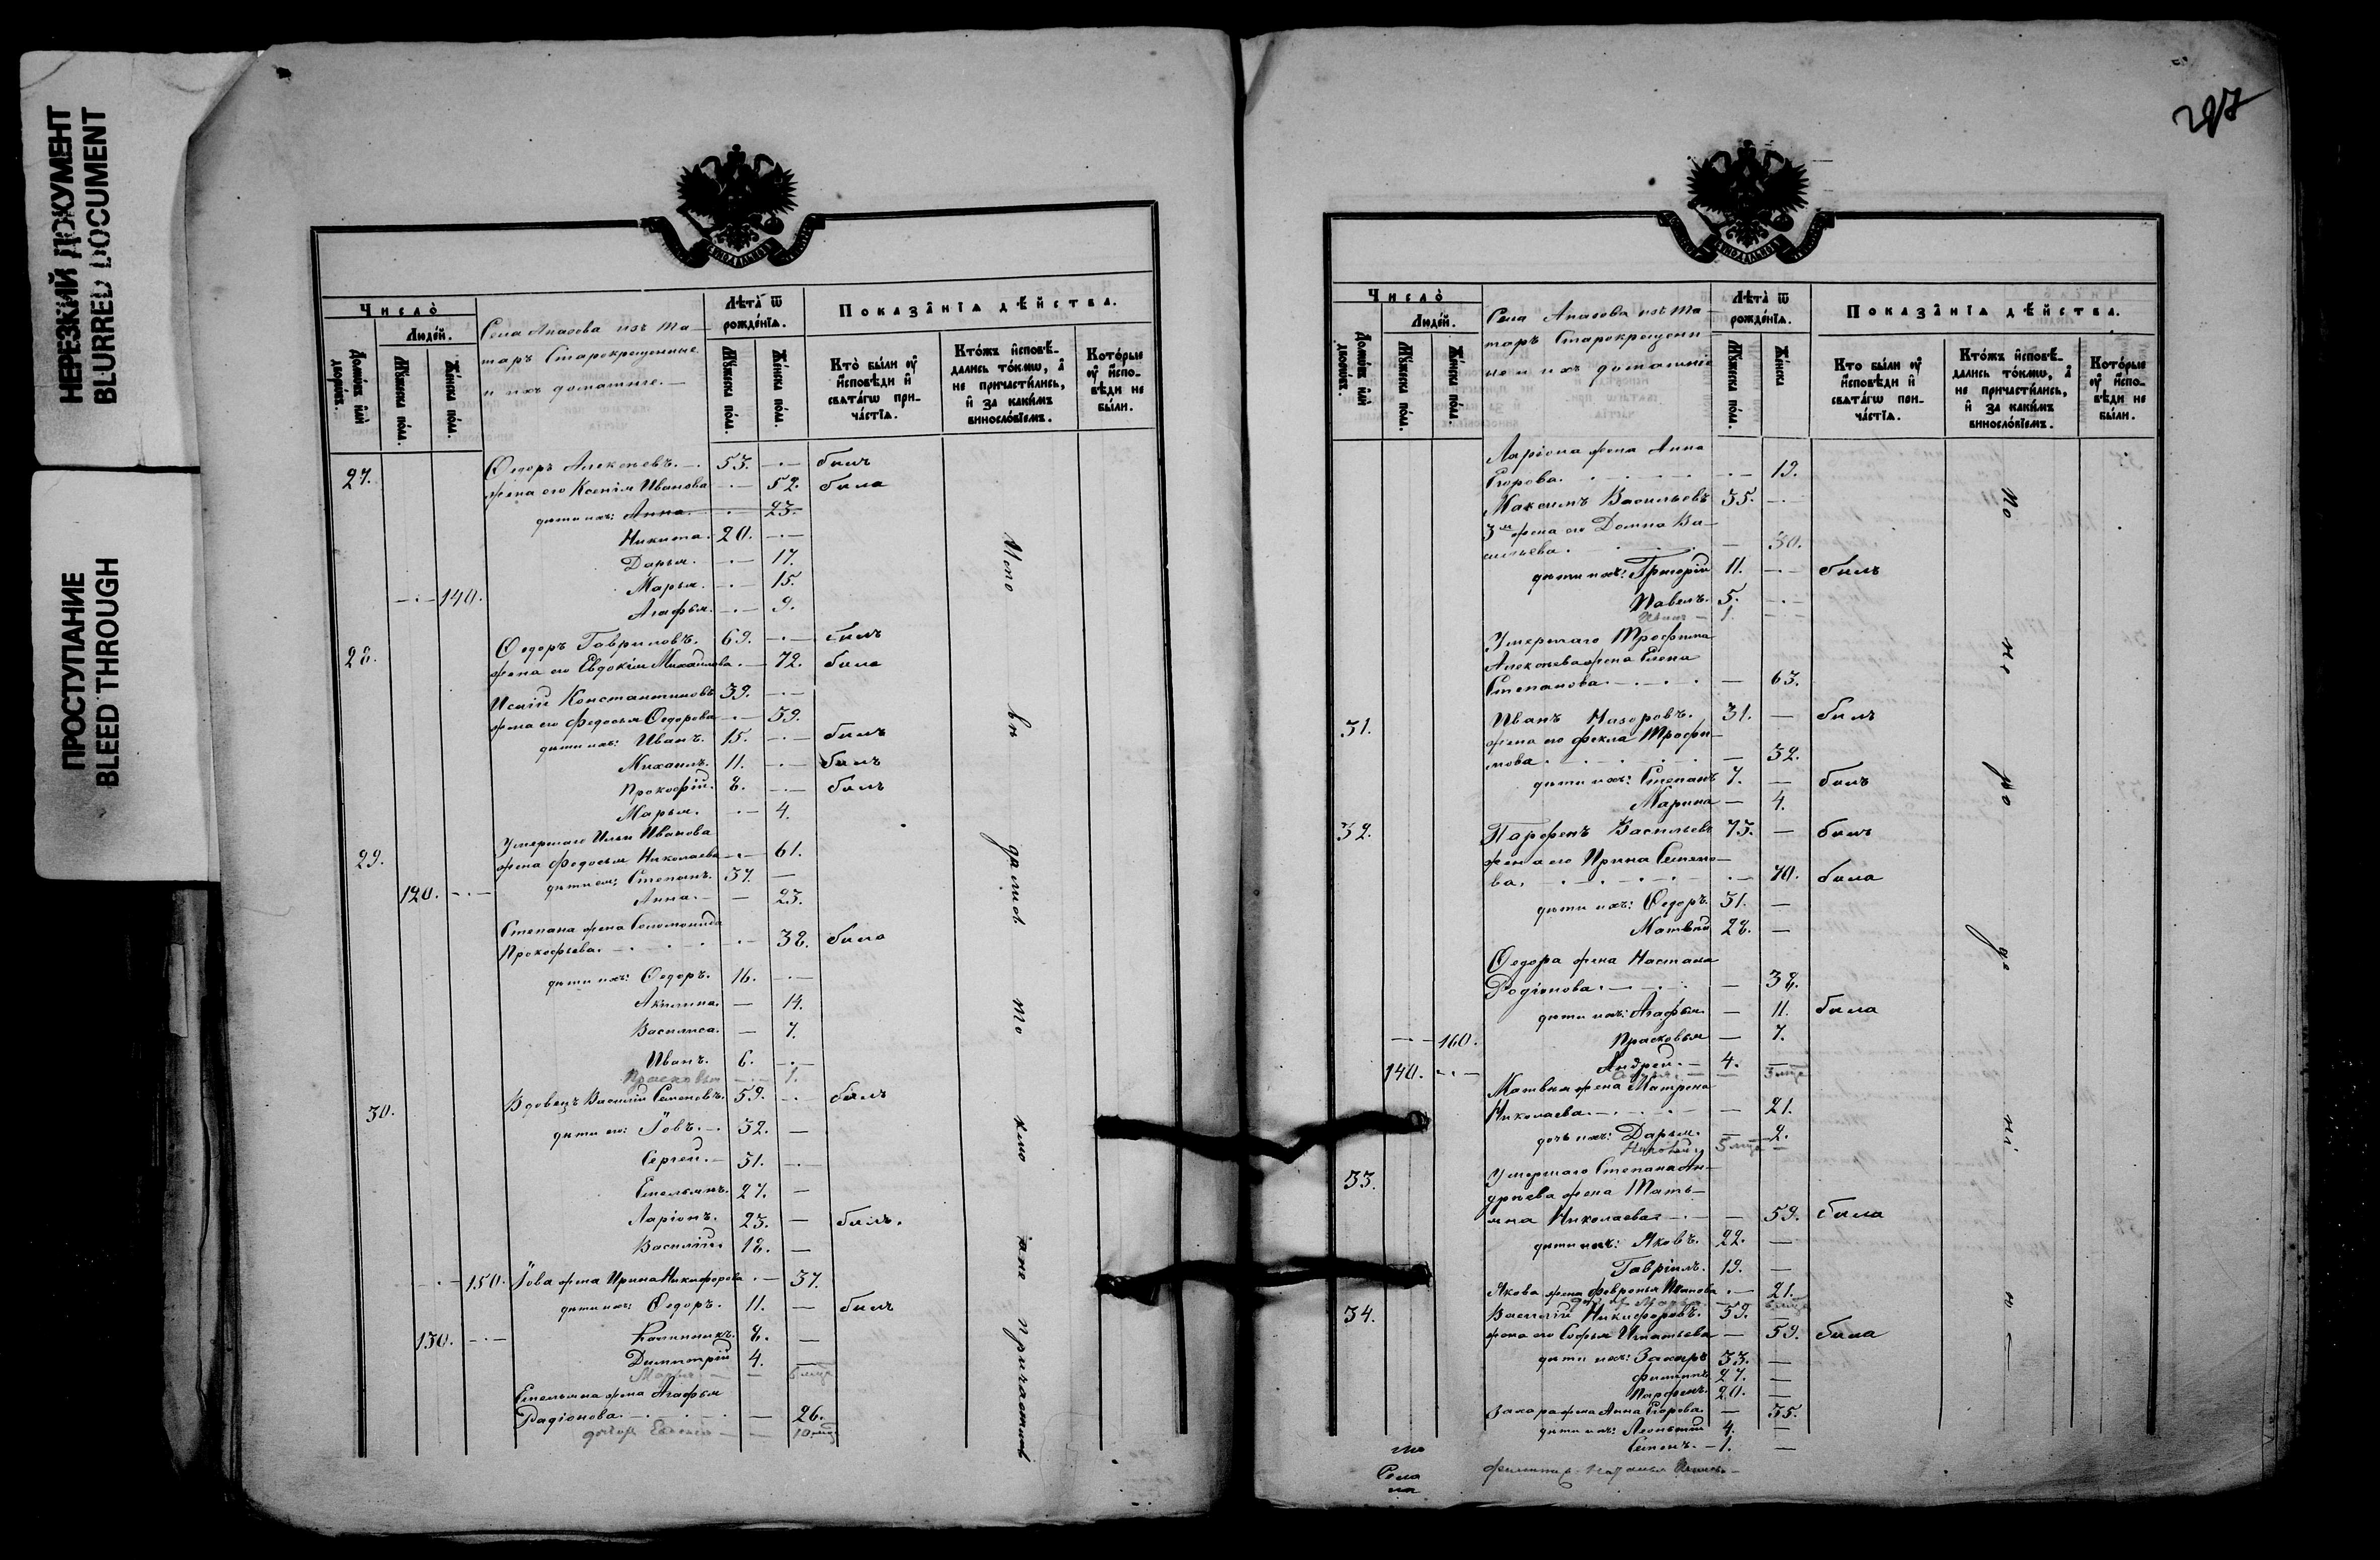 НЕРЕЗКИЙ ДОКУМЕНТ
BLURRED DOCUMENT
ПРОСТУПАНИЕ
BLEED THROUGH
Число̀
Людей.
Домѡвъ и҆лѝ дворѡвъ.
Мꙋжеска пола.
Женска пола.
Села Апазова изъ та-
таръ Старокрещенные
и ихъ домашние.
Лѣта̀ ѿ рожде́нїѧ.
Мꙋжеска пола.
Женска пола.
Показа̑нїѧ дѣ́йства.
Кто̀ бы́ли ᲂу҆ и҆́сповѣди и҆ свѧта́гѡ прича́стїѧ.
Кто́жъ и҆сповѣ́дались то́кмѡ, а҆ не причасти́лись, и҆ за каки́мъ винослѡ́вїемъ.
Кото́рые ᲂу҆ и҆́сповѣди не бы́ли.
27. Ѳедоръ Алексѣевъ. 53. — былъ
жена его Ксенія Иванова — 52. была
дѣти ихъ: Анна. — 23.
Никита. 20. —
Дарья. — 17.
Марья. — 15.
140. Агафья. — 9.
28. Ѳедоръ Гавриловъ. 69. — былъ
жена его Евдокія Михайлова. — 72. была
Исаій Константиновъ 39. —
жена его Федосья Ѳедорова — 39.
дѣти ихъ: Иванъ. 15. — былъ
Михаилъ. 11. — былъ
Прокофій. 8. — былъ
Марья. — 4.
Умершаго Ильи Иванова
29. жена Федосья Николаева — 61.
дѣти ея: Степанъ. 37. —
120. Анна. — 23.
Степана жена Соломонида
Прокофьева. — 38. была
дѣти ихъ: Ѳедоръ. 16. —
Акилина. — 14.
Василиса. — 7.
Иванъ. 6. —
Прасковья — 1.
30. Вдовецъ Василій Семеновъ. 59. — былъ
дѣти его: Іовъ. 32. —
Сергей. 31. —
Емельянъ. 27. —
Ларіонъ. 23. — былъ.
Василій. 18. —
150. Іова жена Ирина Никифорова — 37.
дѣти ихъ: Ѳедоръ. 11. — былъ
130. Калинникъ. 8. —
Димитрій 4. —
Марья — 6 мцъ
Емельяна жена Агафья
Радіонова. — 26.
дочь — 10 мцъ
Испо
вѣ
дались
то
кмо
а не
причастились
Число̀
Людей.
Домѡвъ и҆лѝ дворѡвъ.
Мꙋжеска пола.
Женска пола.
Села Апазова изъ та
таръ Старокрещенн
ые и ихъ домашние
Лѣта̀ ѿ рожде́нїѧ.
Мꙋжеска пола.
Женска
Показа̑нїѧ дѣ́йства.
Кто̀ бы́ли ᲂу҆ и҆́сповѣди и҆ свѧта́гѡ прича́стїѧ.
Кто́жъ и҆сповѣ́дались то́кмѡ, а҆ не причасти́лись, и҆ за каки́мъ винослѡ́вїемъ.
Кото́рые ᲂу҆ и҆́сповѣди не бы́ли.
Ларіона жена Анна
Егорова. — 19.
Максимъ Васильевъ 35. —
3я жена его Домна Ва-
сильева. — 30.
дѣти ихъ: Григорій 11. — былъ
Павелъ. 5. —
1.
Умершаго Трофима
Алексѣева жена Елена
Степанова. — 63.
31. Иванъ Назаровъ. 31. — былъ
жена его Фекла Трофи-
мова. — 32.
дѣти ихъ: Степанъ 7. — былъ
Марина — 4.
32. Парфенъ Васильевъ 73. — былъ
жена его Ирина Семено-
ва. — 70. была
дѣти ихъ: Ѳедоръ 31. —
Матвѣй 28. —
Ѳедора жена Настасья
Родіонова. — 38.
дѣти ихъ: Агафья. — 11. была
160. Прасковья — 7.
140. Андрей. 4. —
3 мцъ
Матвѣя жена Матрена
Николаева. — 21.
дочь ихъ: Дарья. — 2.
5 мцъ —
33. Умершаго Степана Ан-
дреева жена Мать-
яна Николаева — 59. была
дѣти ихъ: Яковъ. 22. —
Гавріилъ. 19. —
Якова жена Февронья Иванова — 21.
34. Василій Никифоровъ. 59. —
жена его Софья Игнатьева — 59. была
дѣти ихъ: Захаръ 33. —
Филиппъ 27. —
Парфенъ. 20. —
Захара жена Анна Егорова. — 35.
дѣти ихъ: Леонтій 4. —
Семенъ. 1. —
Филиппа Наталья
По
не
до
су
гу
Села